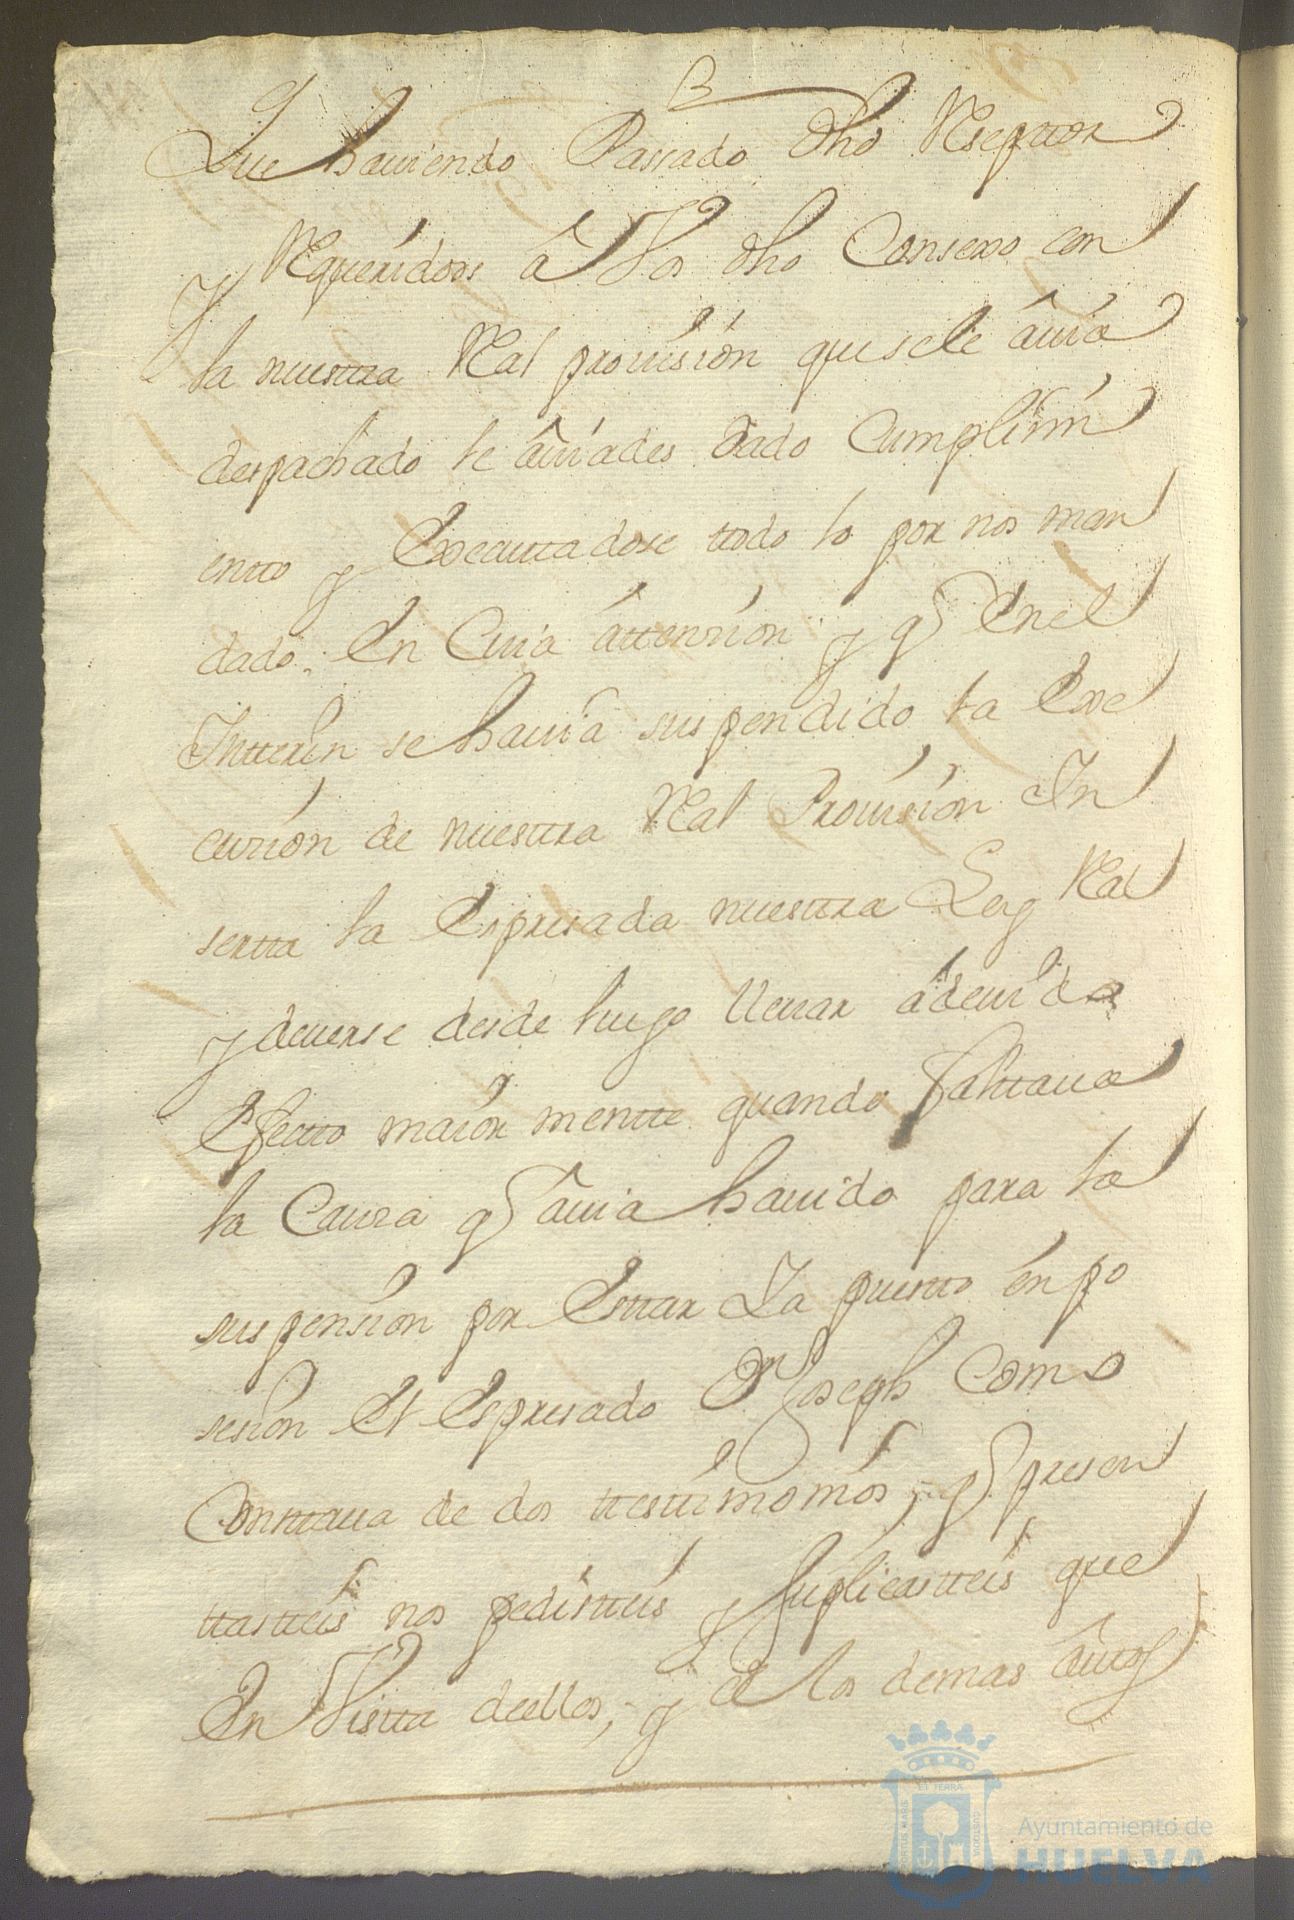 Que haviendo Passado dho Rseptor
y Requeridoos â Vos dho Consexo con
la nuestra Real provision que se le âuia
despachado le âuiades dado Cumplimi
entto y Executadose ttodo lo por nos man
dado. En Cuia âttension y q Enel
Intterin se hauia suspendido la Exe
cucion de nuestra Real Provision In
sertta la Espresada nuestra Ley Real
y deuerse desde luego lleuar â deuida
Efectto maiormentte quando falttaua
la Causa q âuia hauido para la
suspension por Esttar Ya puestto en po
session El Espresado Dn Joseph Como
Consttaua de dos ttesttimonios, q presen
ttastteis nos pedistteis y suplicastteis que
En Vistta deellos, y de los demas âuttos
ET TERRA
PORTUS MARIS
CUSTODIA
Ayuntamiento de
HUELVA